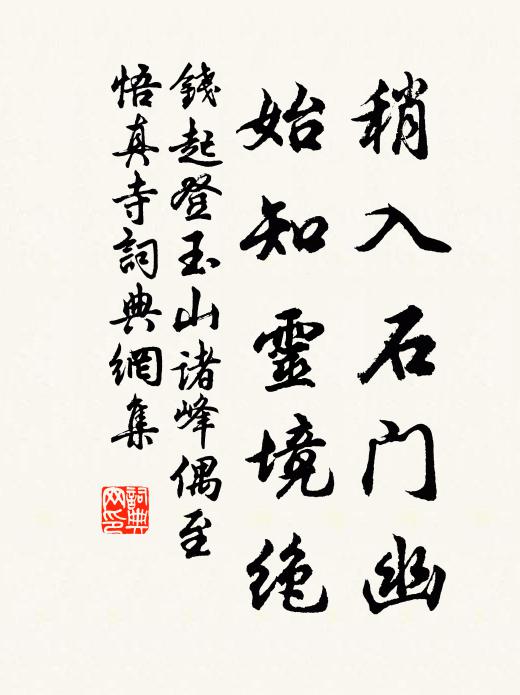 稍入石门幽
始知靈境绝
錢起登玉山诸峰偶至
悟真寺詞典網集
詞典网印